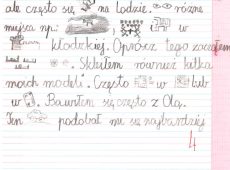 ale często się na lodzie. różne
miejsca np: i w
kłodzkiej. Oprócz tego zacząłem
. Skleiłem również kilka
moich modeli. Często w lub
w . Bawiłem się często z Olą.
Ten podobał mi się najbardziej
4